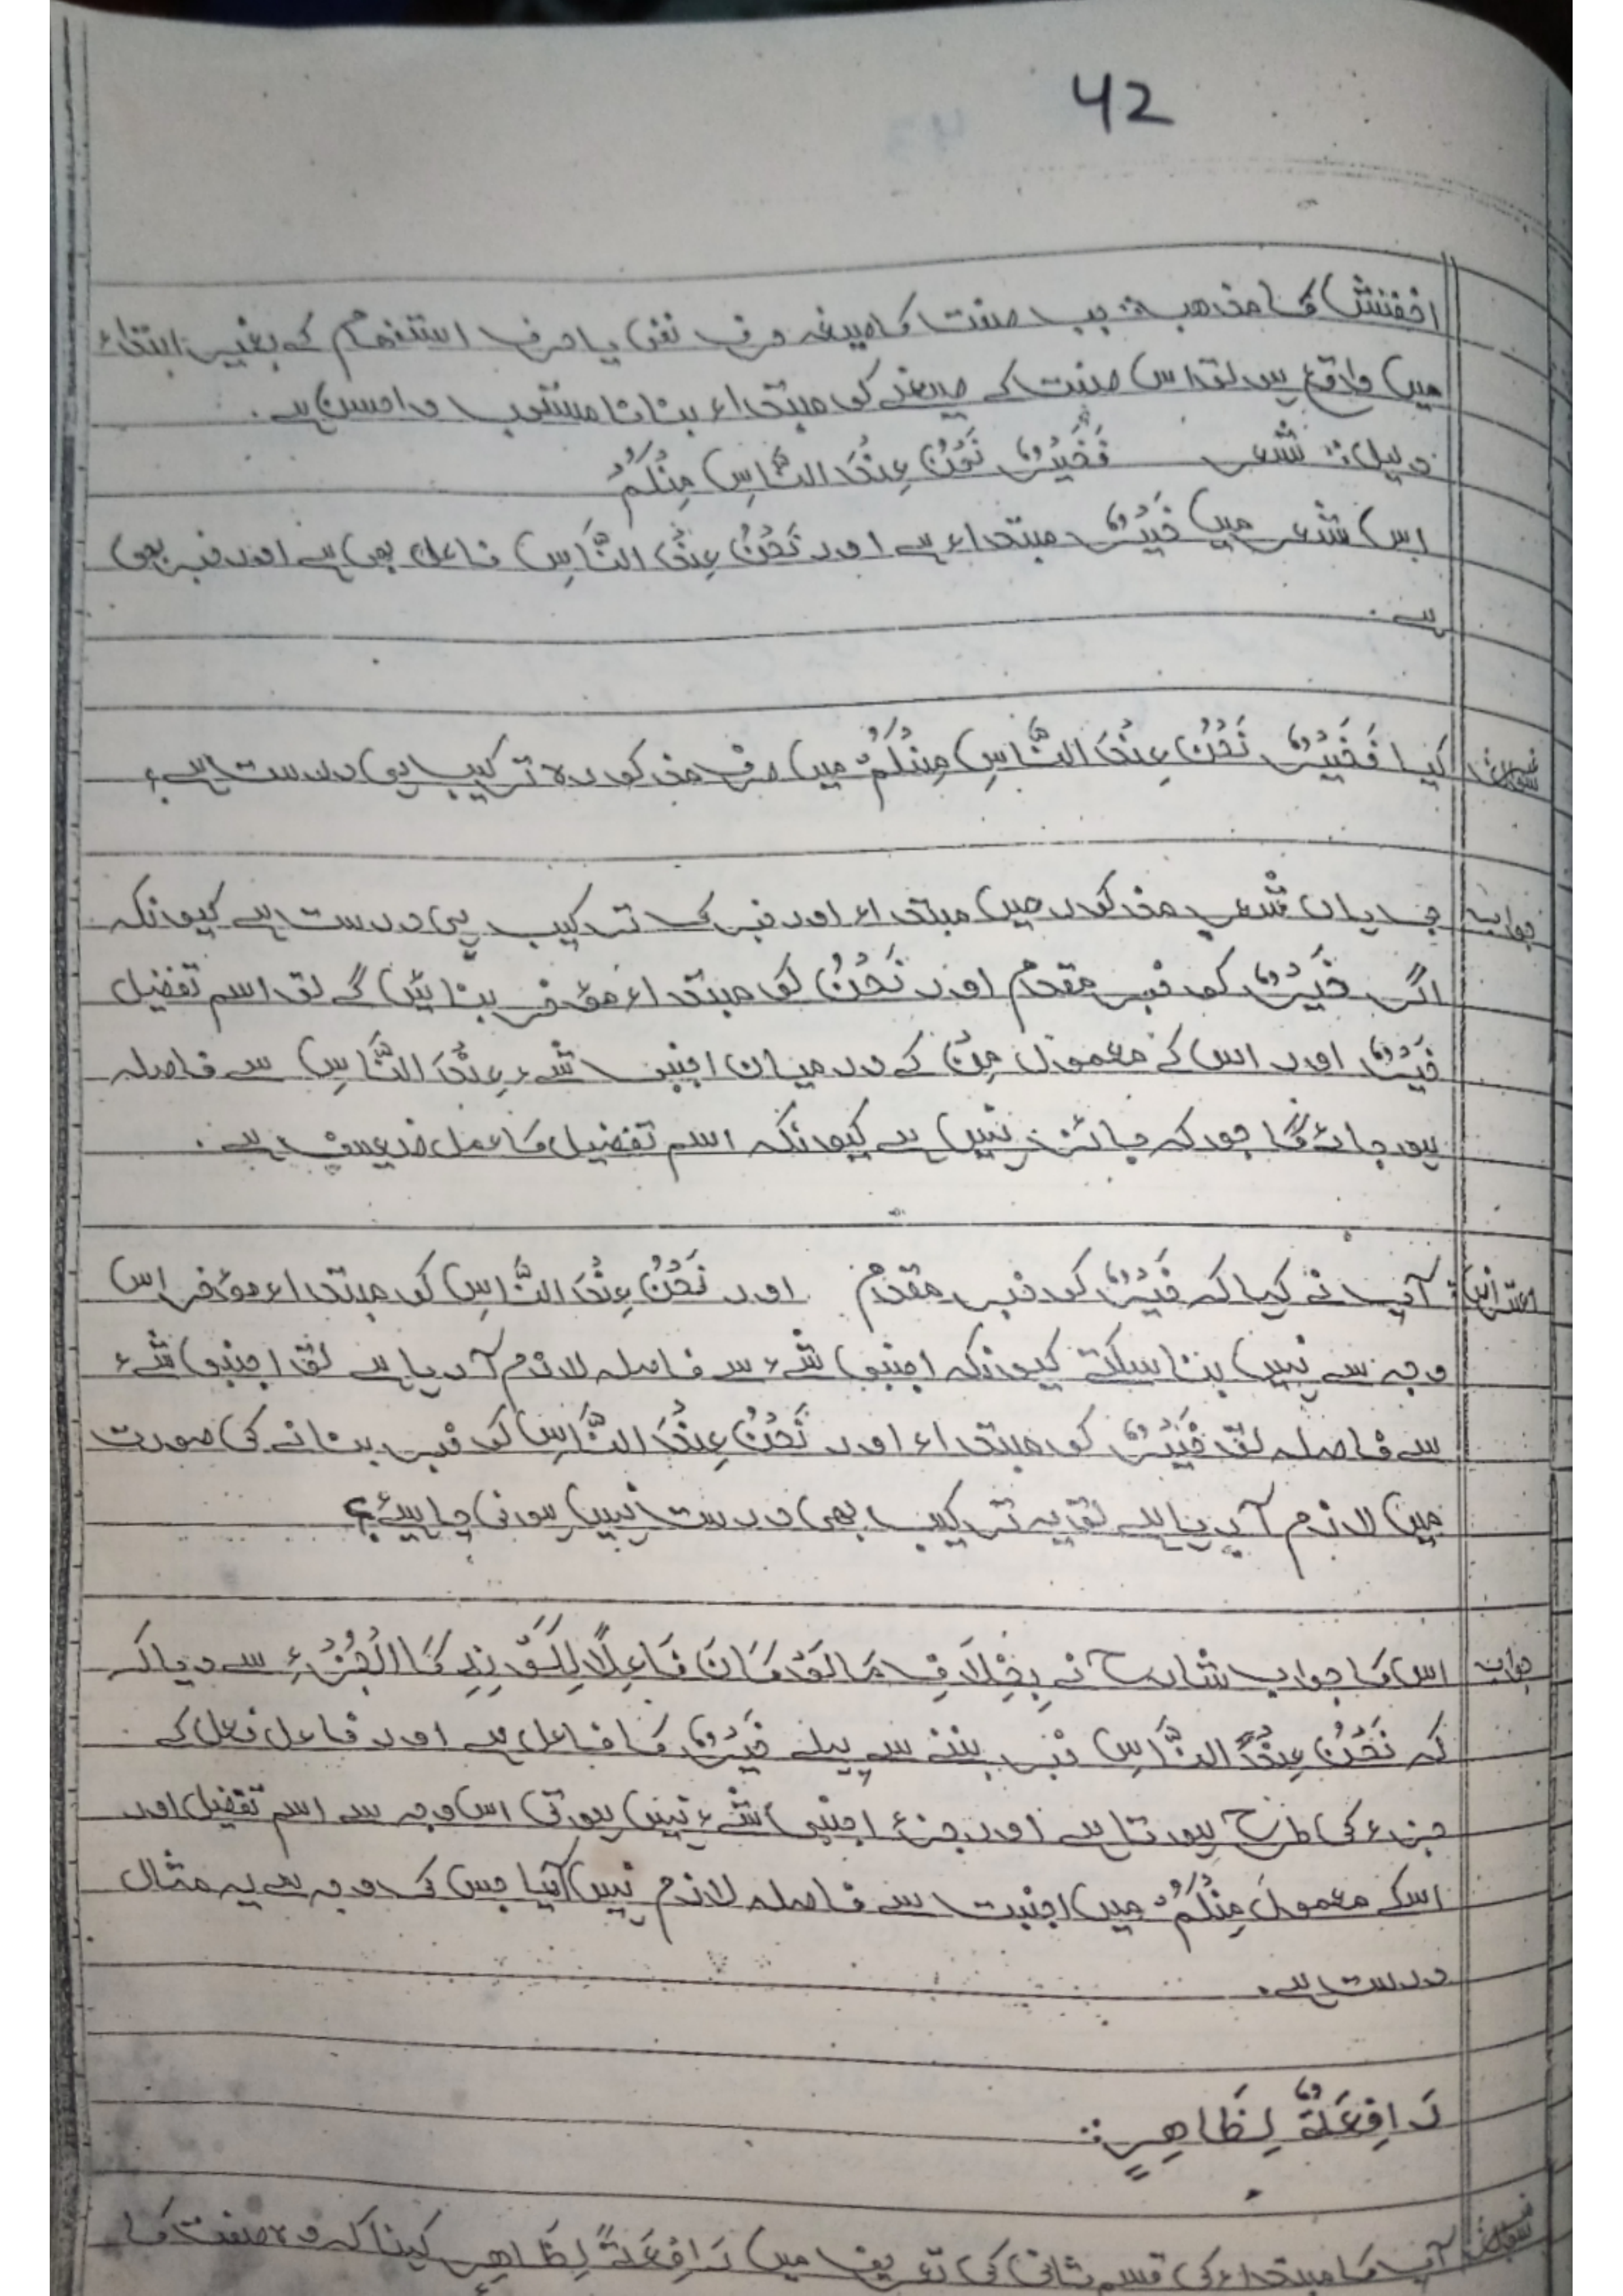 42
اخفش کا مذہب:: جب صفت کا صیغہ حرف نفی یا حرف استفہام کے بغیر ابتداء
میں واقع ہو تو اس صفت کے صیغے کو مبتداء بنانا مستحب و احسن ہے۔
دلیل:: شعر فَخَيْرٌ نَحْنُ عِنْدَ النَّاسِ مِنْكُمْ
اس شعر میں خَيْرٌ مبتداء ہے اور نَحْنُ عِنْدَ النَّاسِ فاعل بھی ہے اور خبر بھی
ہے۔
سوال کیا فَخَيْرٌ نَحْنُ عِنْدَ النَّاسِ مِنْكُمْ میں صرف مذکورہ ترکیب ہی درست ہے؟
جواب جی ہاں شعر مذکور میں مبتداء اور خبر کی ترکیب ہی درست ہے کیونکہ
اگر خَيْرٌ کو خبر مقدم اور نَحْنُ کو مبتداء مؤخر بنائیں گے تو اسم تفضیل
خَيْرٌ اور اس کے معمول مِنْ کے درمیان اجنبی شےء عِنْدَ النَّاسِ سے فاصلہ
ہو جائے گا جو کہ جائز نہیں ہے کیونکہ اسم تفضیل کا عمل ضعیف ہے۔
اعتراض: آپ نے کہا کہ خَيْرٌ کو خبر مقدم اور نَحْنُ عِنْدَ النَّاسِ کو مبتداء مؤخر اس
وجہ سے نہیں بنا سکتے کیونکہ اجنبی شےء سے فاصلہ لازم آ رہا ہے تو اجنبی شےء
سے فاصلہ تو خَيْرٌ کو مبتداء اور نَحْنُ عِنْدَ النَّاسِ کو خبر بنانے کی صورت
میں لازم آ رہا ہے تو یہ ترکیب بھی درست نہیں ہونی چاہیئے؟
جواب اس کا جواب شارح نے بِخِلَافِ مَا لَوْ كَانَ فَاعِلًا لِكَوْنِهِ كَالْجُزْءِ سے دیا کہ
کہ نَحْنُ عِنْدَ النَّاسِ خبر بننے سے پہلے خَيْرٌ کا فاعل ہے اور فاعل فعل کے
جزء کی طرح ہوتا ہے اور جزء اجنبی شےء نہیں ہوتی اس وجہ سے اسم تفضیل اور
اسکے معمول مِنْكُمْ میں اجنبیت سے فاصلہ لازم نہیں آیا جس کی وجہ سے یہ مثال
درست ہے۔
رَافِعَةٌ لِظَاهِرٍ::
سوال آپ کا مبتداء کی قسم ثانی کی تعریف میں رَافِعَةً لِظَاهِرٍ کہنا کہ وہ صفت کا